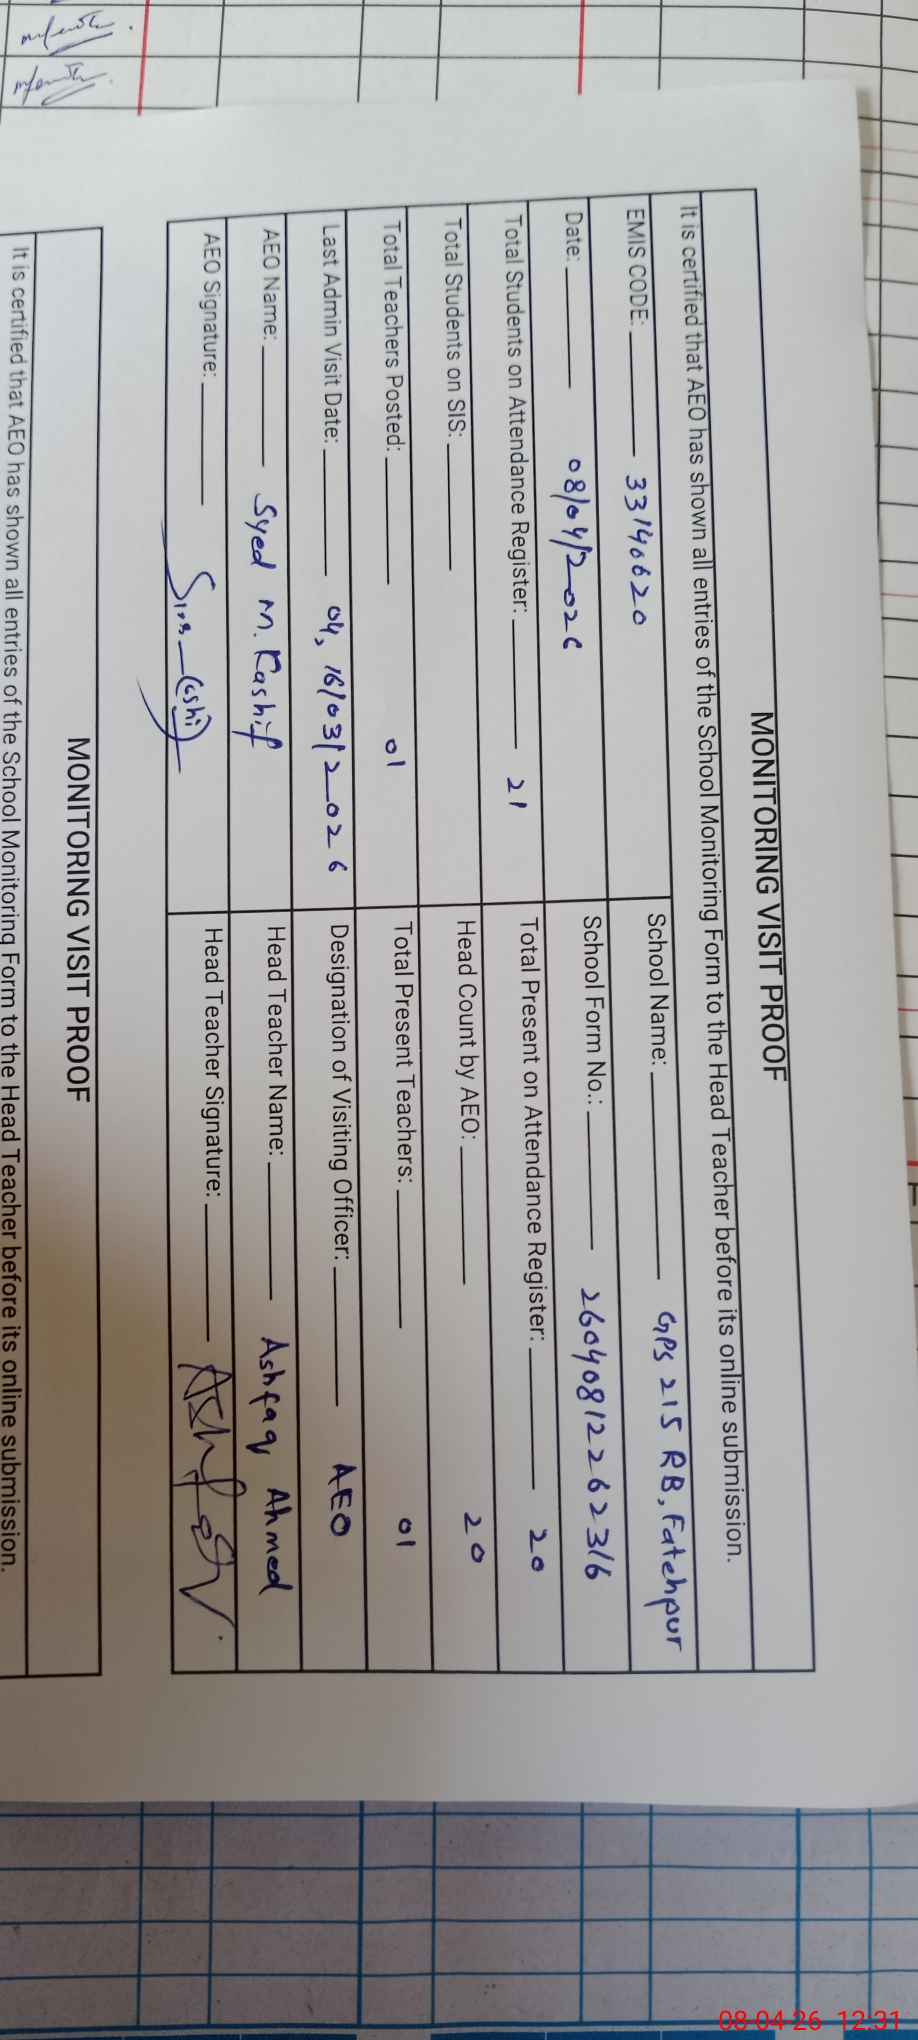 MONITORING VISIT PROOF
It is certified that AEO has shown all entries of the School Monitoring Form to the Head Teacher before its online submission.
EMIS CODE: 33140620
School Name: GPS 215 RB, Fatehpur
Date: 08/04/2026
School Form No.: 26040812262316
Total Students on Attendance Register: 21
Total Present on Attendance Register: 20
Total Students on SIS:
Head Count by AEO: 20
Total Teachers Posted: 01
Total Present Teachers: 01
Last Admin Visit Date: 04, 16/03/2026
Designation of Visiting Officer: AEO
AEO Name: Syed M. Kashif
Head Teacher Name: Ashfaq Ahmed
AEO Signature:
Head Teacher Signature:
MONITORING VISIT PROOF
It is certified that AEO has shown all entries of the School Monitoring Form to the Head Teacher before its online submission.
08-04-26 12:31